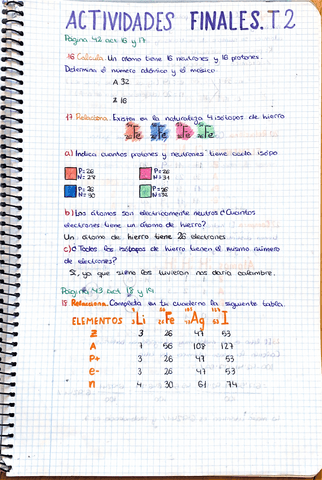 ACTIVIDADES FINALES. T2
Página 42 act 16 y 17
16 Calcula. Un átomo tiene 16 neutrones y 16 protones.
Determina el número atómico y el másico
A 32
Z 16
17 Relaciona. Existen en la naturaleza 4 isótopos de hierro
Fe Fe Fe Fe
a) Indica cuántos protones y neutrones tiene cada isótopo
P=26 P=26
N=28 N=31
P=26 P=26
N=30 N=32
b) Los átomos son eléctricamente neutros ¿Cuántos
electrones tiene un átomo de hierro?
Un átomo de hierro tiene 26 electrones
c) ¿Todos los isótopos de hierro tienen el mismo número
de electrones?
Sí, ya que si no los tuvieran nos daría calambre.
Página 43 act 18 y 19
18 Relaciona. Completa en tu cuaderno la siguiente tabla.
ELEMENTOS Li Fe Ag I
Z 3 26 47 53
A 7 56 108 127
P+ 3 26 47 53
e- 3 26 47 53
n 4 30 61 74